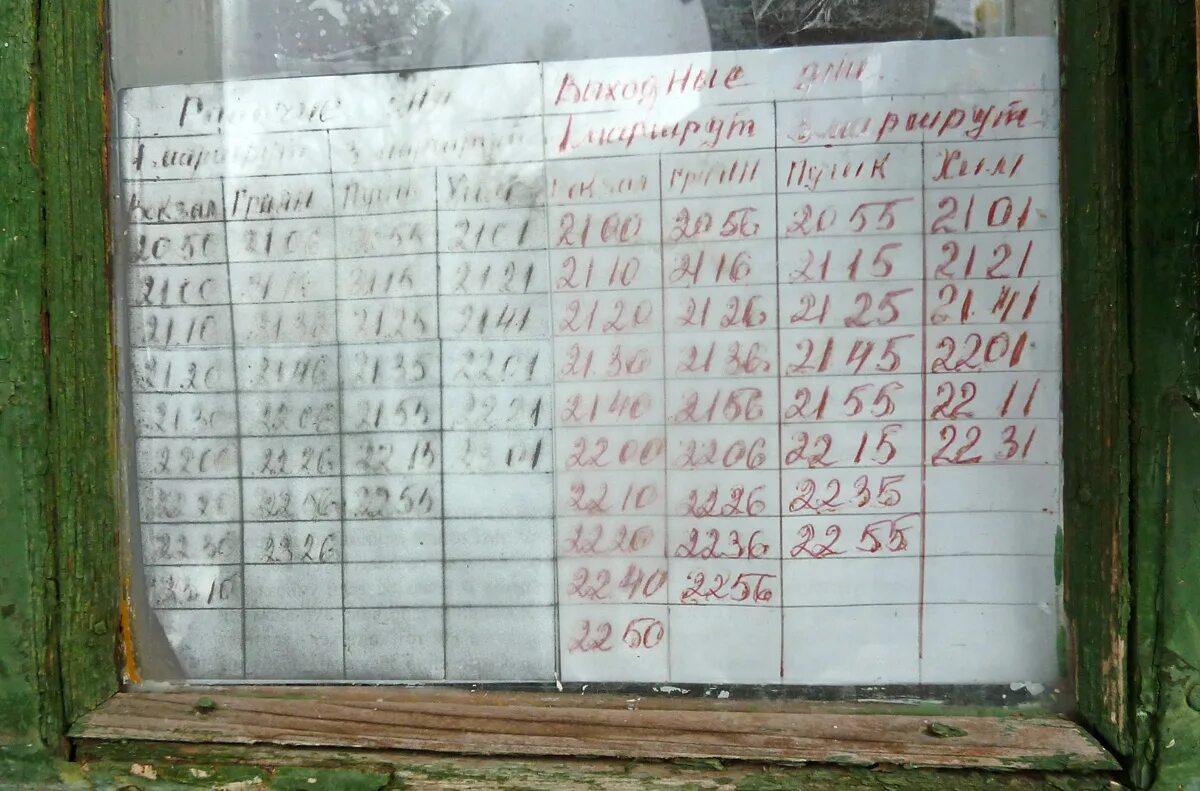 Рабочие дни Выходные дни
1 маршрут 3 маршрут 1 маршрут 3 маршрут
Вокзал Грин Пушк Хим Вокзал Хим
2050 2106 2055 2101 2100 2056 2055 2101
2100 2115 2121 2110 2116 2115 2121
2110 2125 2141 2120 2126 2125 2141
2120 2146 2135 2201 2130 2136 2145 2201
2130 2206 2155 2221 2140 2156 2155 2211
2200 2226 2215 2301 2200 2206 2215 2231
2220 2256 2255 2210 2226 2235
2250 2326 2220 2236 2255
2310 2240 2256
2250